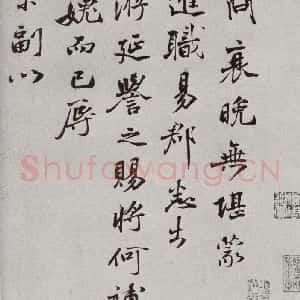 間衰晚無堪蒙
進職易郡悉出
游延譽之賜將何補
媿而已辱
副以
Shufawang.CN